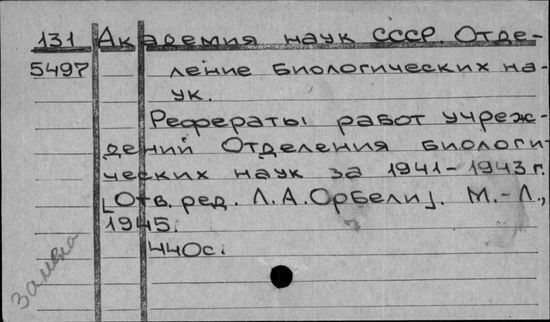 131 Академия наук СССР. Отде-
5497 ление биологических на-
ук.
Рефераты работ учреж-
дений Отделения биологи-
ческих наук за 1941-1943 г.
[Отв. ред. Л.А.Орбели]. М.-Л.,
1945.
440с.
замена